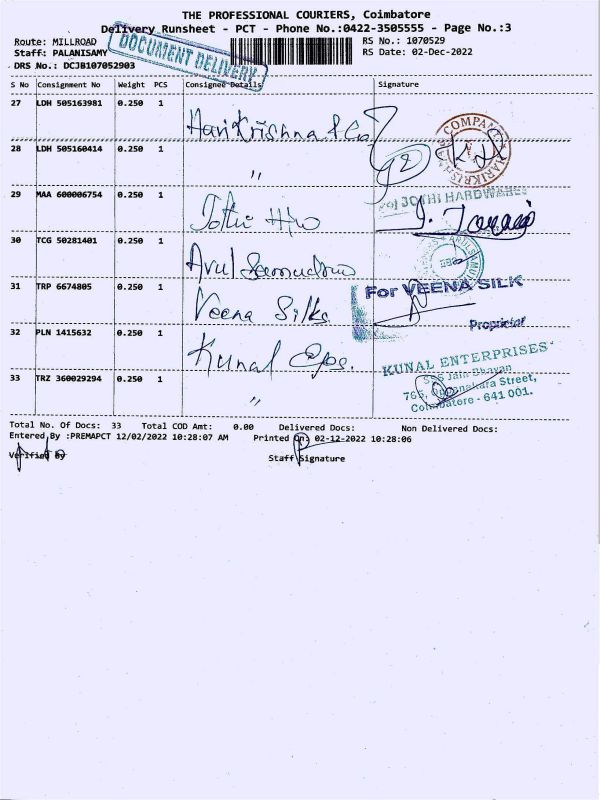 THE PROFESSIONAL COURIERS, Coimbatore
Delivery Runsheet - PCT - Phone No.:0422-3505555 - Page No.:3
Route: MILLROAD
RS No.: 1070529
Staff: PALANISAMY
RS Date: 02-Dec-2022
DRS No.: DCJB107052903
DOCUMENT DELIVERY
S No Consignment No Weight PCS Consignee Details Signature
27 LDH 505163981 0.250 1 HariKrishna & Co
COMPANY HARIKRISHNA
28 LDH 505160414 0.250 1 "
29 MAA 600006754 0.250 1 Jothi H/w
For JOTHI HARDWARES
30 TCG 50281401 0.250 1 Arul
31 TRP 6674805 0.250 1 Veena Silks
For VEENA SILK
Proprietor
32 PLN 1415632 0.250 1 Kunal Eps.
KUNAL ENTERPRISES
Jain Bhavan
Street,
Coimbatore - 641 001.
33 TRZ 360029294 0.250 1 "
Total No. Of Docs: 33 Total COD Amt: 0.00 Delivered Docs: Non Delivered Docs:
Entered By :PREMAPCT 12/02/2022 10:28:07 AM Printed On: 02-12-2022 10:28:06
Verified By
Staff Signature